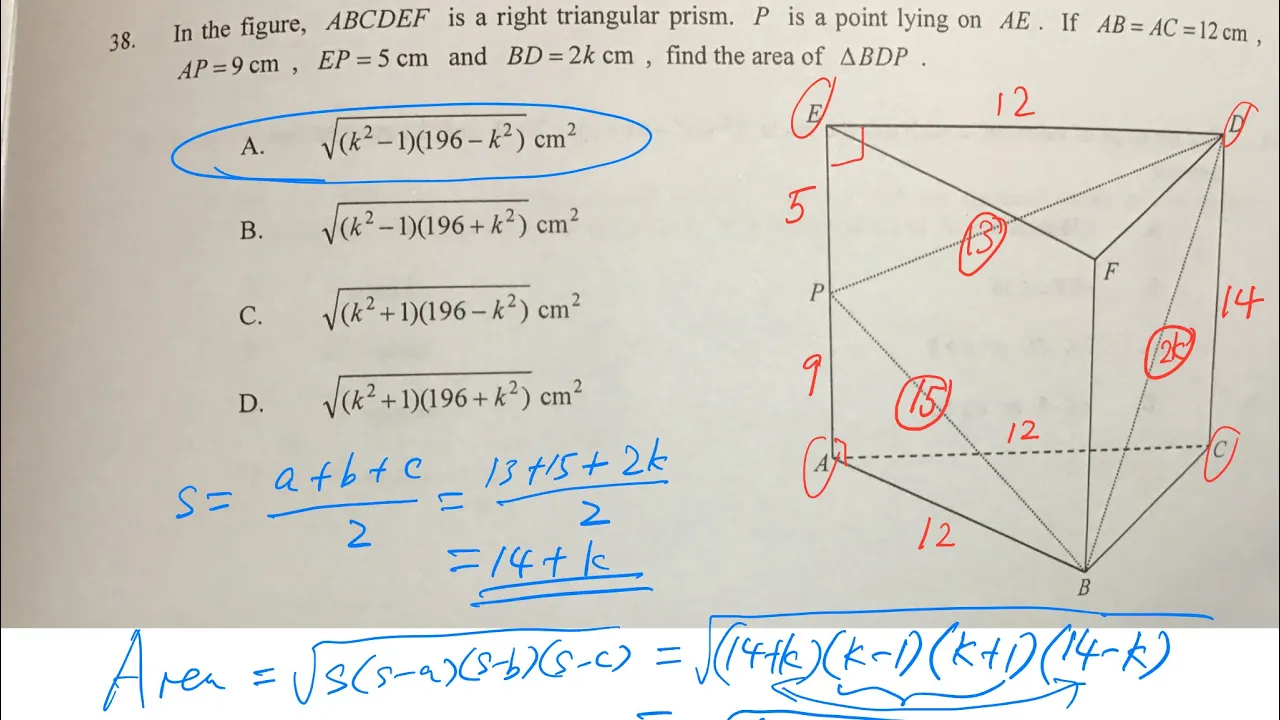 38. In the figure, ABCDEF is a right triangular prism. P is a point lying on AE. If AB = AC = 12 cm,
AP = 9 cm, EP = 5 cm and BD = 2k cm, find the area of ΔBDP.
A. √((k² − 1)(196 − k²)) cm²
B. √((k² − 1)(196 + k²)) cm²
C. √((k² + 1)(196 − k²)) cm²
D. √((k² + 1)(196 + k²)) cm²
E
12
D
5
13
F
P
14
2k
9
15
12
A
C
12
B
S = (a + b + c)/2 = (13 + 15 + 2k)/2
= 14 + k
Area = √(s(s−a)(s−b)(s−c)) = √((14+k)(k−1)(k+1)(14−k))
=